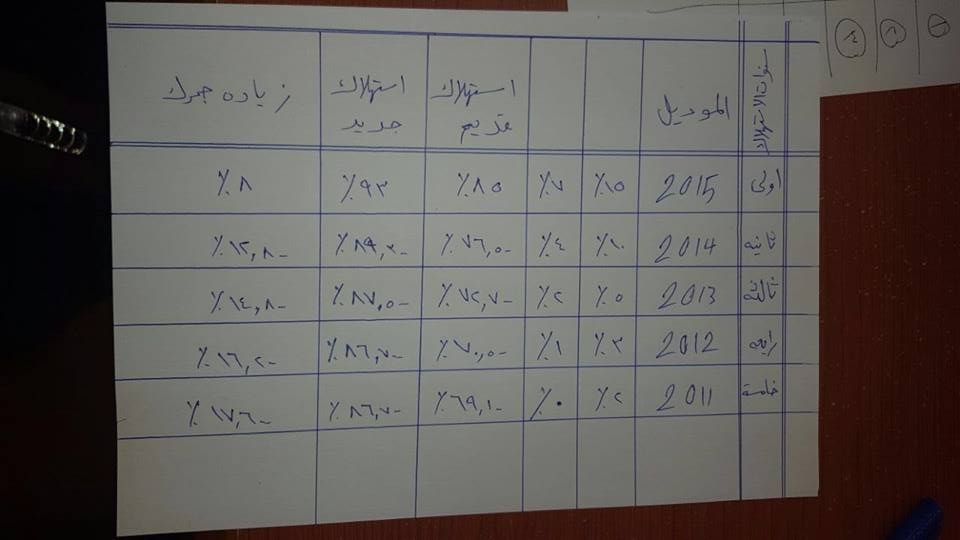 سنوات الاستهلاك الموديل استهلاك قديم استهلاك جديد زياده جمرك
اولى 2015 ٪١٥ ٪٧ ٪٨٥ ٪٩٣ ٪٨
ثانيه 2014 ٪١٠ ٪٤ ٪٧٦,٥٠ ٪٨٩,٣٠ ٪١٢,٨٠
ثالثه 2013 ٪٥ ٪٢ ٪٧٢,٧٠ ٪٨٧,٥٠ ٪١٤,٨٠
رابعه 2012 ٪٣ ٪١ ٪٧٠,٥٠ ٪٨٦,٧٠ ٪١٦,٢٠
خامسة 2011 ٪٢ ٪٠ ٪٦٩,١٠ ٪٨٦,٧٠ ٪١٧,٦٠